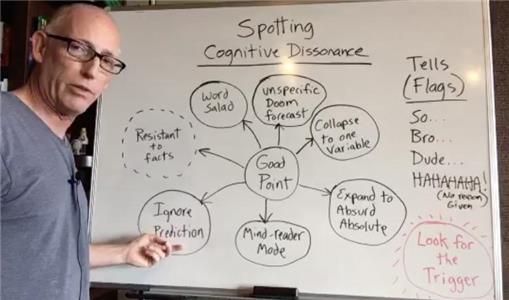 Spotting
Cognitive Dissonance
Word
Salad
unspecific
Doom
forecast
Collapse
to one
Variable
Resistant
to
facts
Good
Point
Ignore
Prediction
Mind-reader
Mode
Expand to
Absurd
Absolute
Tells
(Flags)
So...
Bro...
Dude...
HAHAHAHA!
(No reason
Given)
Look for
the
Trigger